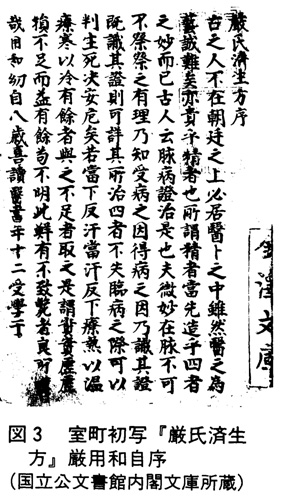 嚴氏濟生方序
古之人不在朝廷之上必居醫卜之中雖然醫之為
藝誠難矣亦貴乎精者也所謂精者當先造乎四者
之妙而已古人云脉病證治是也夫微妙在脉不可
不察察之有理乃知受病之因得病之因乃識其證
既識其證則可詳其所治四者不失臨病之際可以
判生死决安危矣若當下反汗當汗反下療熱以温
療寒以冷有餘者與之不足者取之是謂實實虚虚
損不足而益有餘苟不明此鮮有不致斃者良可
哉用和幼自八歳喜讀醫書年十二受學于
金澤文庫
図3　室町初写『厳氏済生
方』厳用和自序
（国立公文書館内閣文庫所蔵）